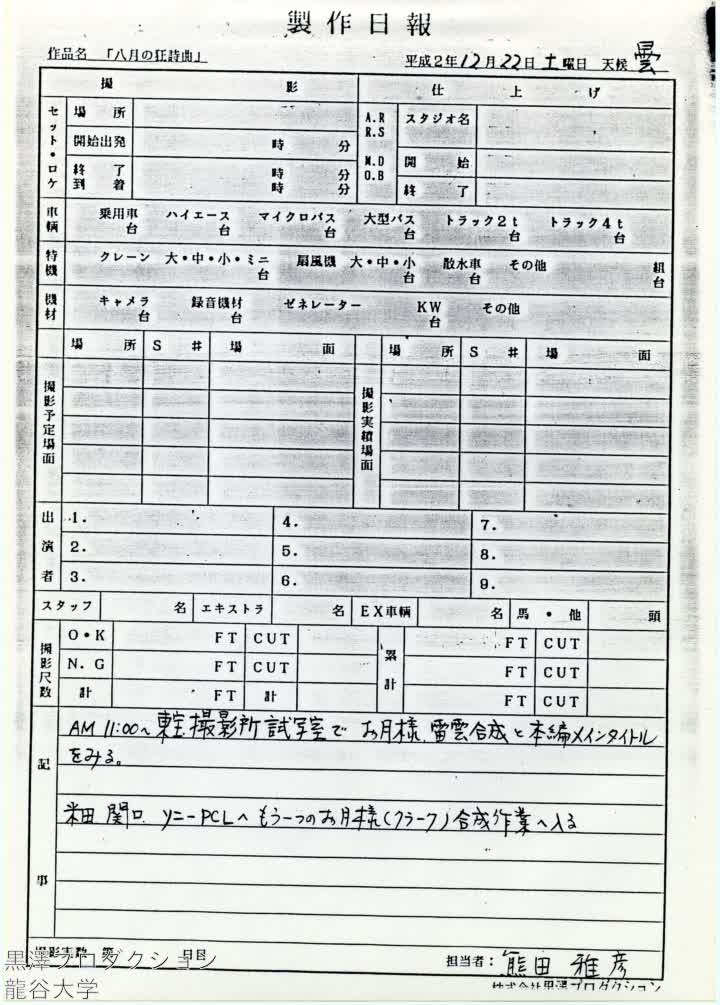 製作日報
作品名 「八月の狂詩曲」 平成2年12月22日 土曜日 天候 曇
撮 影 仕 上 げ
セット・ロケ 場 所 A.R R.S スタジオ名
開始出発 時 分
終 了 時 分 M.D O.B 開 始
到 着 時 分 終 了
車輌 乗用車 台 ハイエース 台 マイクロバス 台 大型バス 台 トラック2t 台 トラック4t 台
特機 クレーン 大・中・小・ミニ 台 扇風機 大・中・小 台 散水車 台 その他 組 台
機材 キャメラ 台 録音機材 台 ゼネレーター KW 台 その他
撮影予定場面 場 所 S # 場 面 撮影実績場面 場 所 S # 場 面
出演者 1. 4. 7.
2. 5. 8.
3. 6. 9.
スタッフ 名 エキストラ 名 EX車輌 名 馬・他 頭
撮影尺数 O・K FT CUT 累計 FT CUT
N.G FT CUT FT CUT
計 FT 計 FT CUT
記事
AM 11:00〜東宝撮影所試写室で お月様、雷雲合成と本編メインタイトル
をみる。
米田 関口 ソニーPCLへ もう一つのお月様(クラーク)合成作業へ入る
撮影実数 第 日目
担当者: 熊田 雅彦
株式会社黒澤プロダクション
黒澤プロダクション
龍谷大学